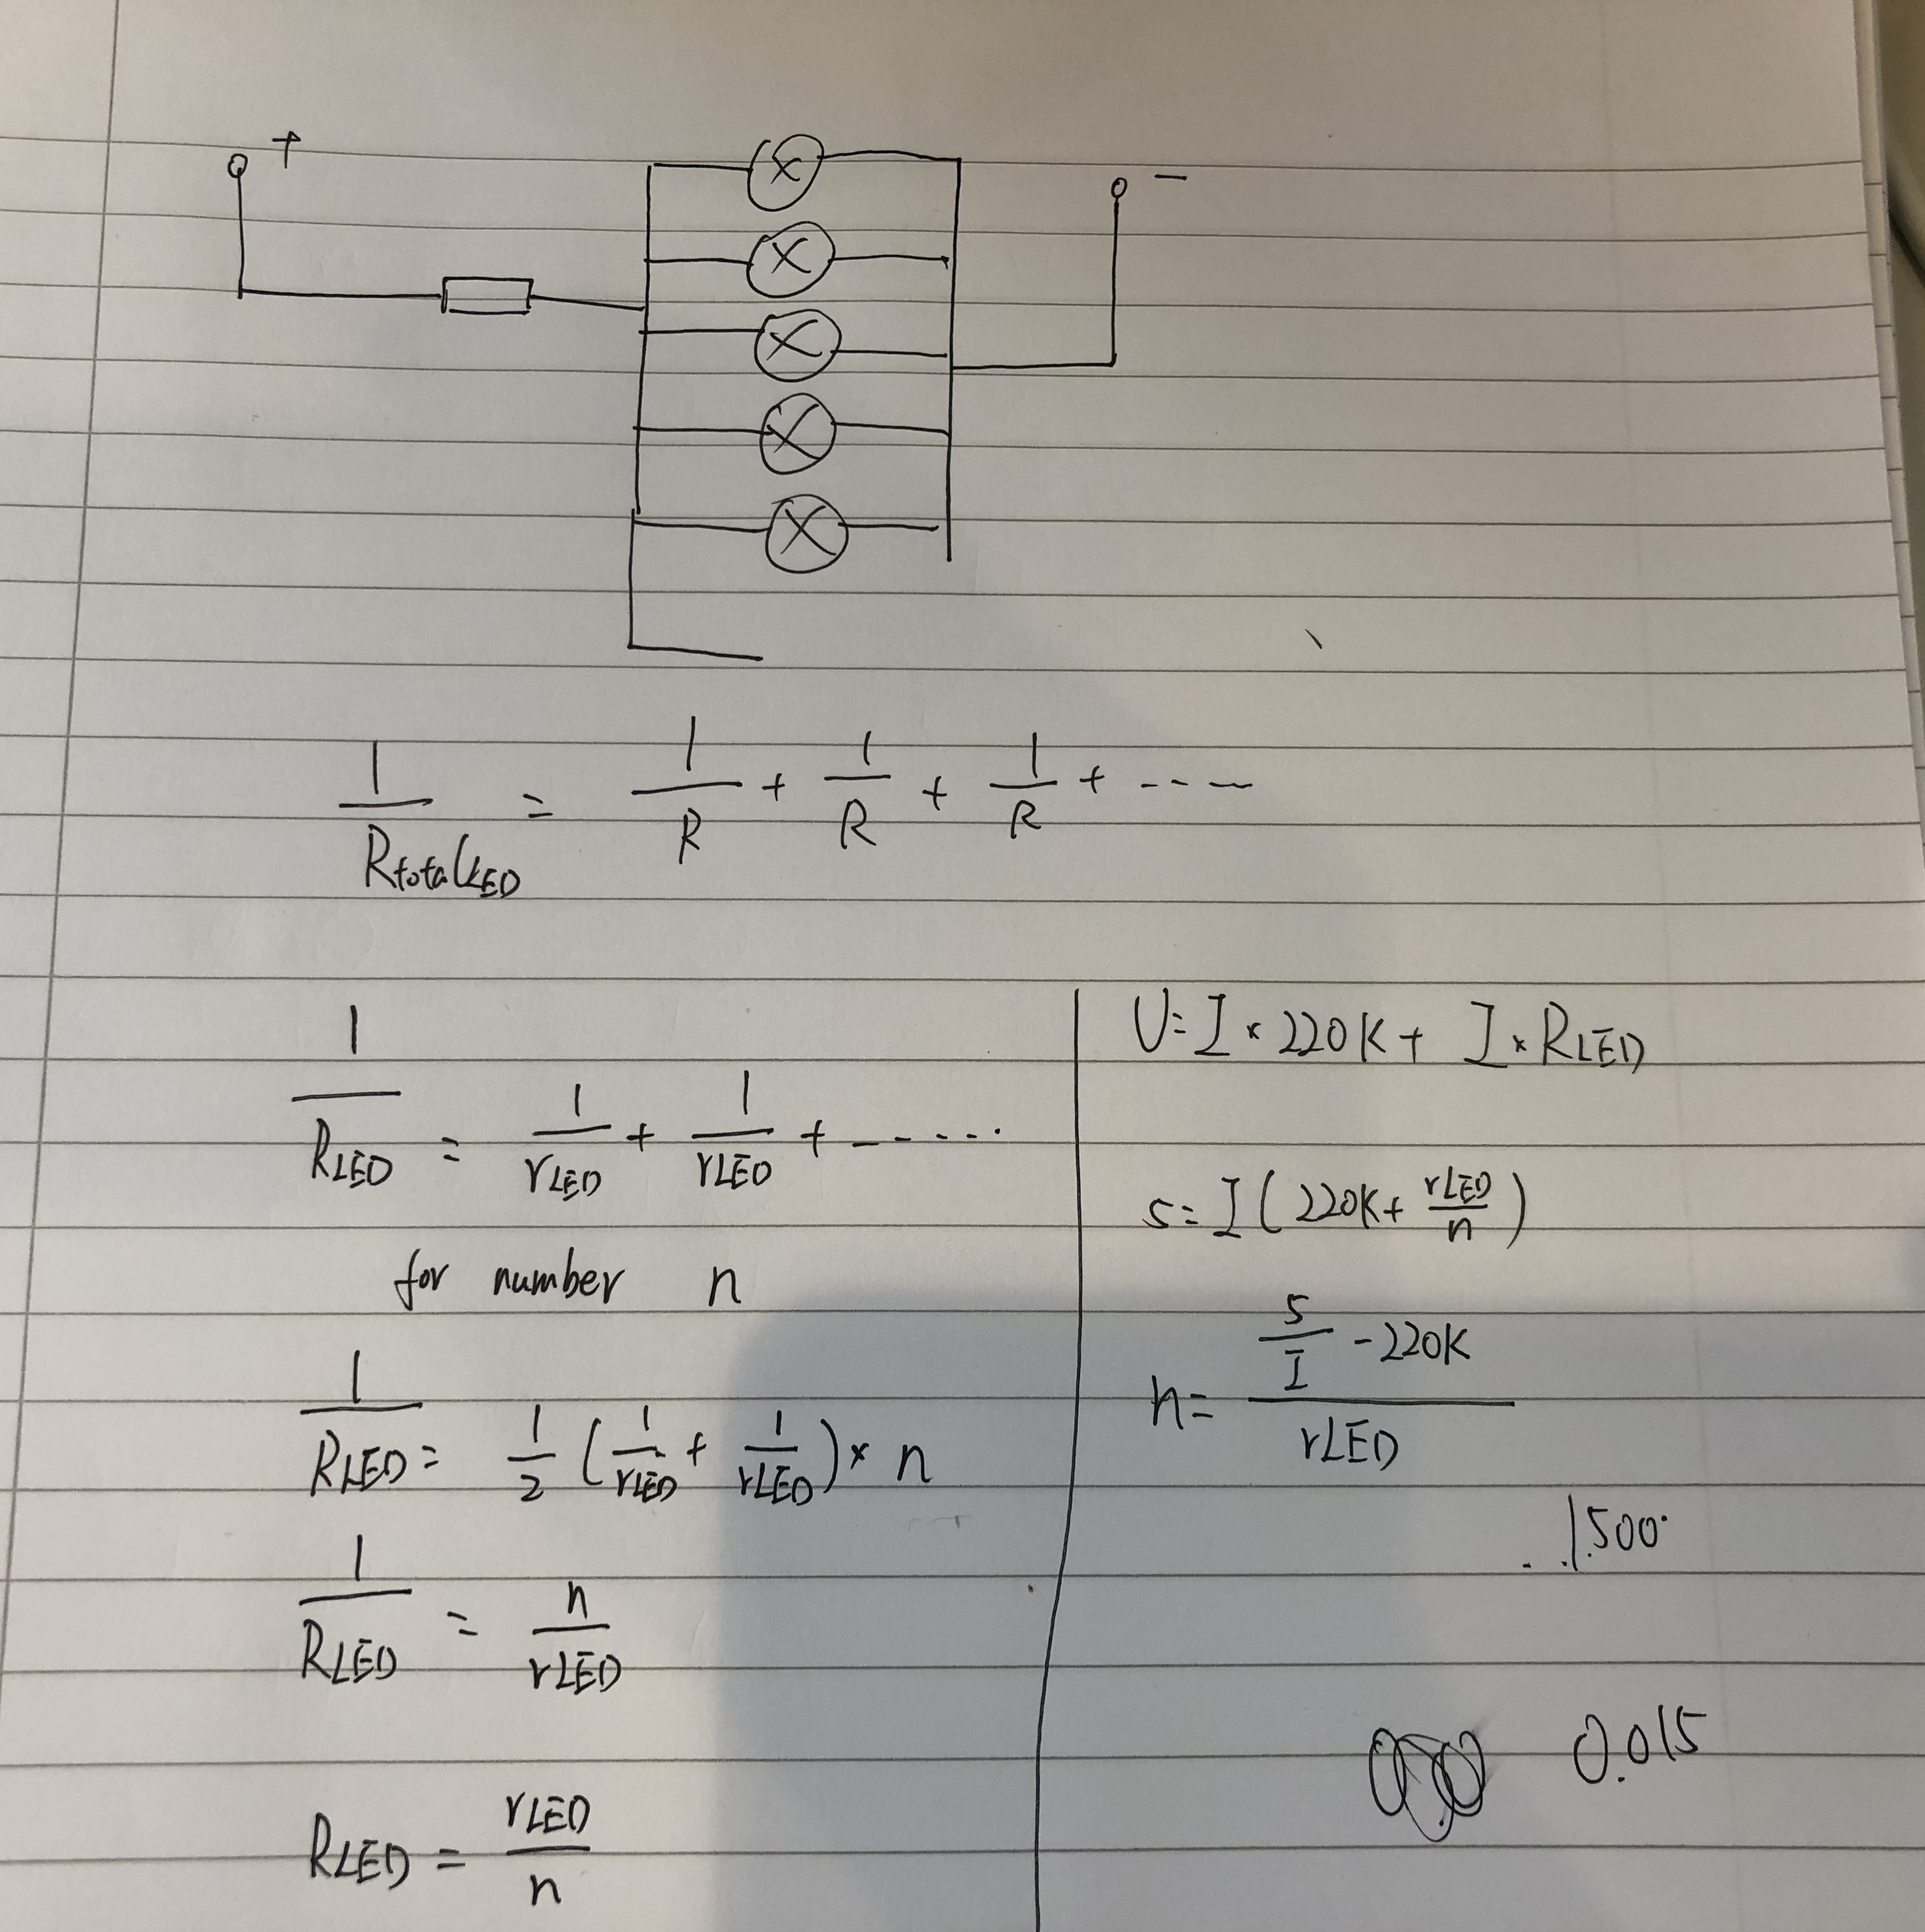 +
−
1/R_total LED = 1/R + 1/R + 1/R + ----
1/R_LED = 1/r_LED + 1/r_LED + -----
for number n
1/R_LED = 1/2 (1/r_LED + 1/r_LED) × n
1/R_LED = n/r_LED
R_LED = r_LED/n
U = I × 220K + I × R_LED
5 = I (220K + r_LED/n)
n = (5/I - 220K)/r_LED
1500
0.015